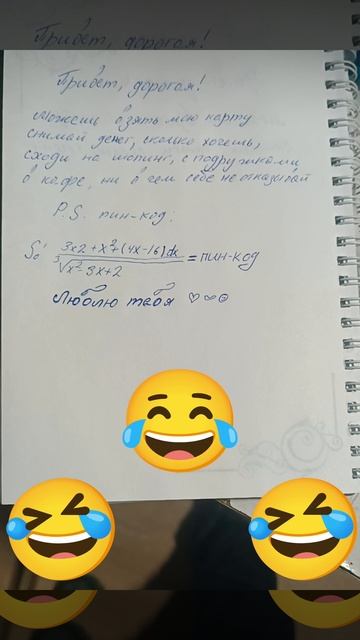 Привет, дорогая!
Привет, дорогая!
Можешь взять мою карту
снимай денег, сколько хочешь,
сходи на шопинг, с подружками
в кафе, ни в чем себе не отказывай
P.S. пин-код:
∫₀¹ (3x2+x²+(4x-16)dx)/∛(x²-3x+2) = пин-код
Люблю тебя ♡∞☺